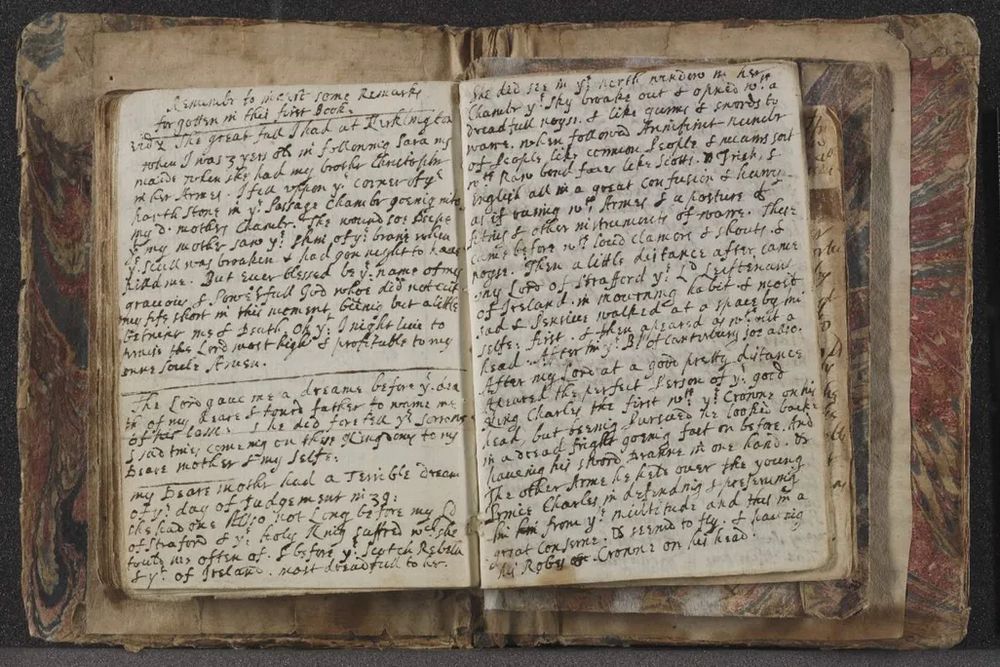 Remember to insert some Remarks
forgotten in this first Booke
vidz The great fall I had at Kirklington
when I was 3 yers old in following Sara my
maide when she had my brother Christopher
in her Armes. I fell uppon ye corner of ye
harth Stone in ye Passage Chamber goeing into
my d. mothers Chamber. The wound soe Deepe
yt my mother saw ye skin of ye braine when
ye scull was broaken & had gon night to have
kild me. But ever blessed be ye name of my
gracious & Powerfull God whoe did not cutt
my life short in this moment, beeing but a little
betwixt me & Death. Oh yt I might live to
the Lord most high & profitable to my
owne soule Amen.
The Lord gave me a dreame before ye dea
th of my deare & honrd father to me
of his losse. & he did foretell ye sorrows
& sad times comeing on these Kingdoms to my
Deare mother & my selfe.
my Deare mother had a Terrible dream
of ye day of Judgement in 39:
she had one Also not Long before my Ld
of Straford & ye holy King suffred wch she
tould me often of. & before ye Scotch Rebelli
& yt of Ireland. most dreadfull to her.
she did see in ye north window in her
Chambr ye sky broake out & opned wth a
dreadfull noyse. & like gunns & swords to
warre. when followed Annifinit number
of People like common People & meane sort
wth Raw bond faces like Scotts. & Irish, &
English all in a great confusion & hurry
as if runing wth Armes & a posture of
& other instruments of warre. These
came before wth loud clamors & shouts, &
noyse. Then a little distance after came
my Lord of Straford ye Ld Leiftenant
of Ireland. in mourning habit & most
sad & Pensive walked at a space by him
selfe: first. & then apeared as wthout a
head. After him ye Bp of Canterbury soe also.
After my Lord at a good pretty distance
Apeared the perfect Person of ye good
King Charles the first wth ye Crowne on his
head, but beeing Pursued he looked backe
in a dread fright goeing fast on before. And
haveing his sword Drawne in one hand. &
The other Arme he held over the young
Prince Charles in defending & preserving
him from ye multitude and this in a
great Conserne. & seemed to fly. & having
his Roby & Crowne on his head.